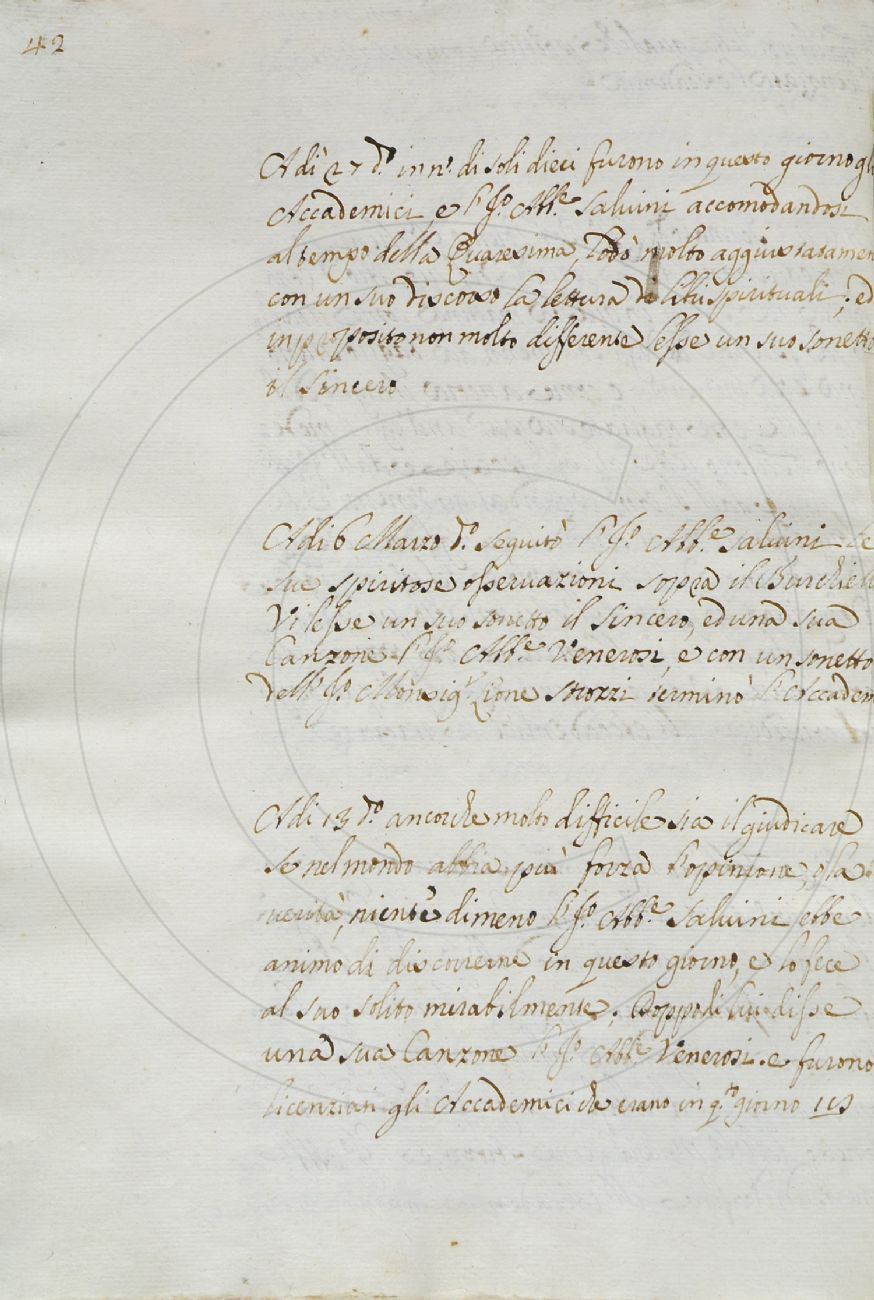 42
Adì 27 d.º in n.º di soli dieci furono in questo giorno gli
Accademici, e l'Il.º Abb.e Salvini accomodandosi
al tempo della Quaresima, lodò molto aggiustatamen
con un suo discorso la lettura de libri spirituali; ed
in proposito non molto differente lesse un suo sonetto
il Sincero
Adi 6 Marzo d.º seguitò l'Il.º Abb.e Salvini le
sue spiritose osservazioni sopra il Burchiell
Vi lesse un suo sonetto il Sincero, ed una sua
Canzone l'Il.º Abb.e Venerosi, e con un sonetto
dell'Il.º Monsig.r Leone Strozzi terminò l'Accadem
Adi 13 d.º ancorche molto difficile sia il giudicare
se nel mondo abbia più forza l'opinione, o la
verità, niente dimeno l'Il.º Abb.e Salvini ebbe
animo di discorrerne in questo giorno, e lo fece
al suo solito mirabilmente; Doppo di lui disse
una sua Canzone l'Il.º Abb.e Venerosi e furono
licenziati gli Accademici che erano in q.to giorno